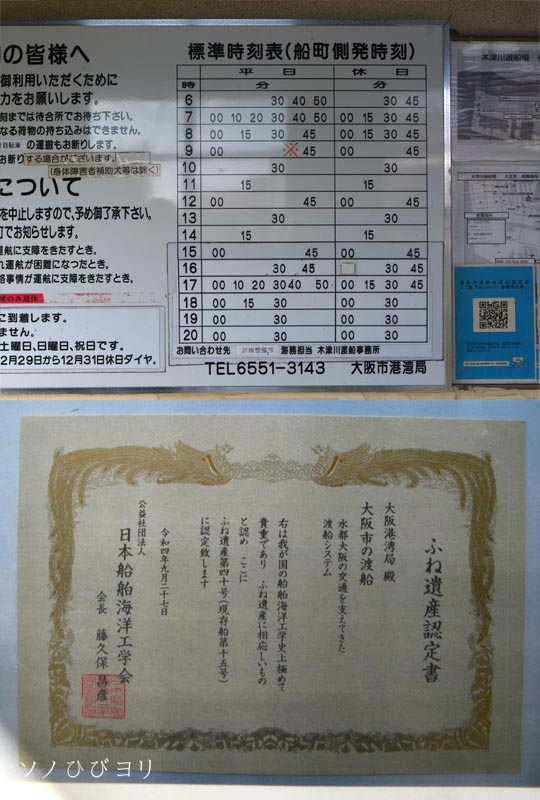 の皆様へ
御利用いただくために
力をお願いします。
刻までは待合所でお待ち下さい。
なる荷物の持ち込みはできません。
自転車 の運搬もお断りします。
お断りする場合がございます。
(身体障害者補助犬等は除く)
について
を中止しますので、予め御了承下さい。
灯でお知らせします。
運航に支障をきたすとき。
れ運航が困難になつたとき。
路事情が運航に支障をきたすとき。
家のみ運休
に到着します。
ません。
土曜日、日曜日、祝日です。
2月29日から12月31日休日ダイヤ。
標準時刻表(船町側発時刻)
平日 休日
時 分 分
6 30 40 50 30 45
7 00 10 20 30 40 50 00 15 30 45
8 00 15 30 45 00 15 30 45
9 00 ※ 45 00 45
10 30 30
11 15 15
12 00 45 00 45
13 30 30
14 15 15
15 00 45 00 45
16 30 45 30 45
17 00 10 20 30 40 50 00 15 30 45
18 00 15 30 00 30
19 00 30 00 30
20 00 30 00 30
お問い合わせ先 計画整備部 海務担当 木津川渡船事務所
TEL6551-3143 大阪市港湾局
木津川渡船場
ふね遺産認定書
大阪港湾局 殿
大阪市の渡船
水都大阪の交通を支えてきた
渡船システム
右は我が国の船舶海洋工学史上極めて
貴重であり ふね遺産に相応しいもの
と認め ここに
ふね遺産第四十号(現存船第十五号)
に認定致します
令和四年九月二十七日
公益社団法人
日本船舶海洋工学会
会長 藤久保 昌彦
ソノひびヨリ